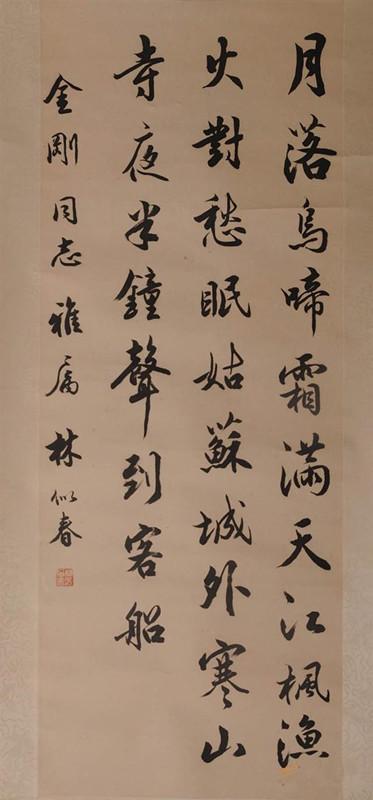 月落烏啼霜滿天江楓漁
火對愁眠姑蘇城外寒山
寺夜半鐘聲到客船
金剛同志雅屬林似春